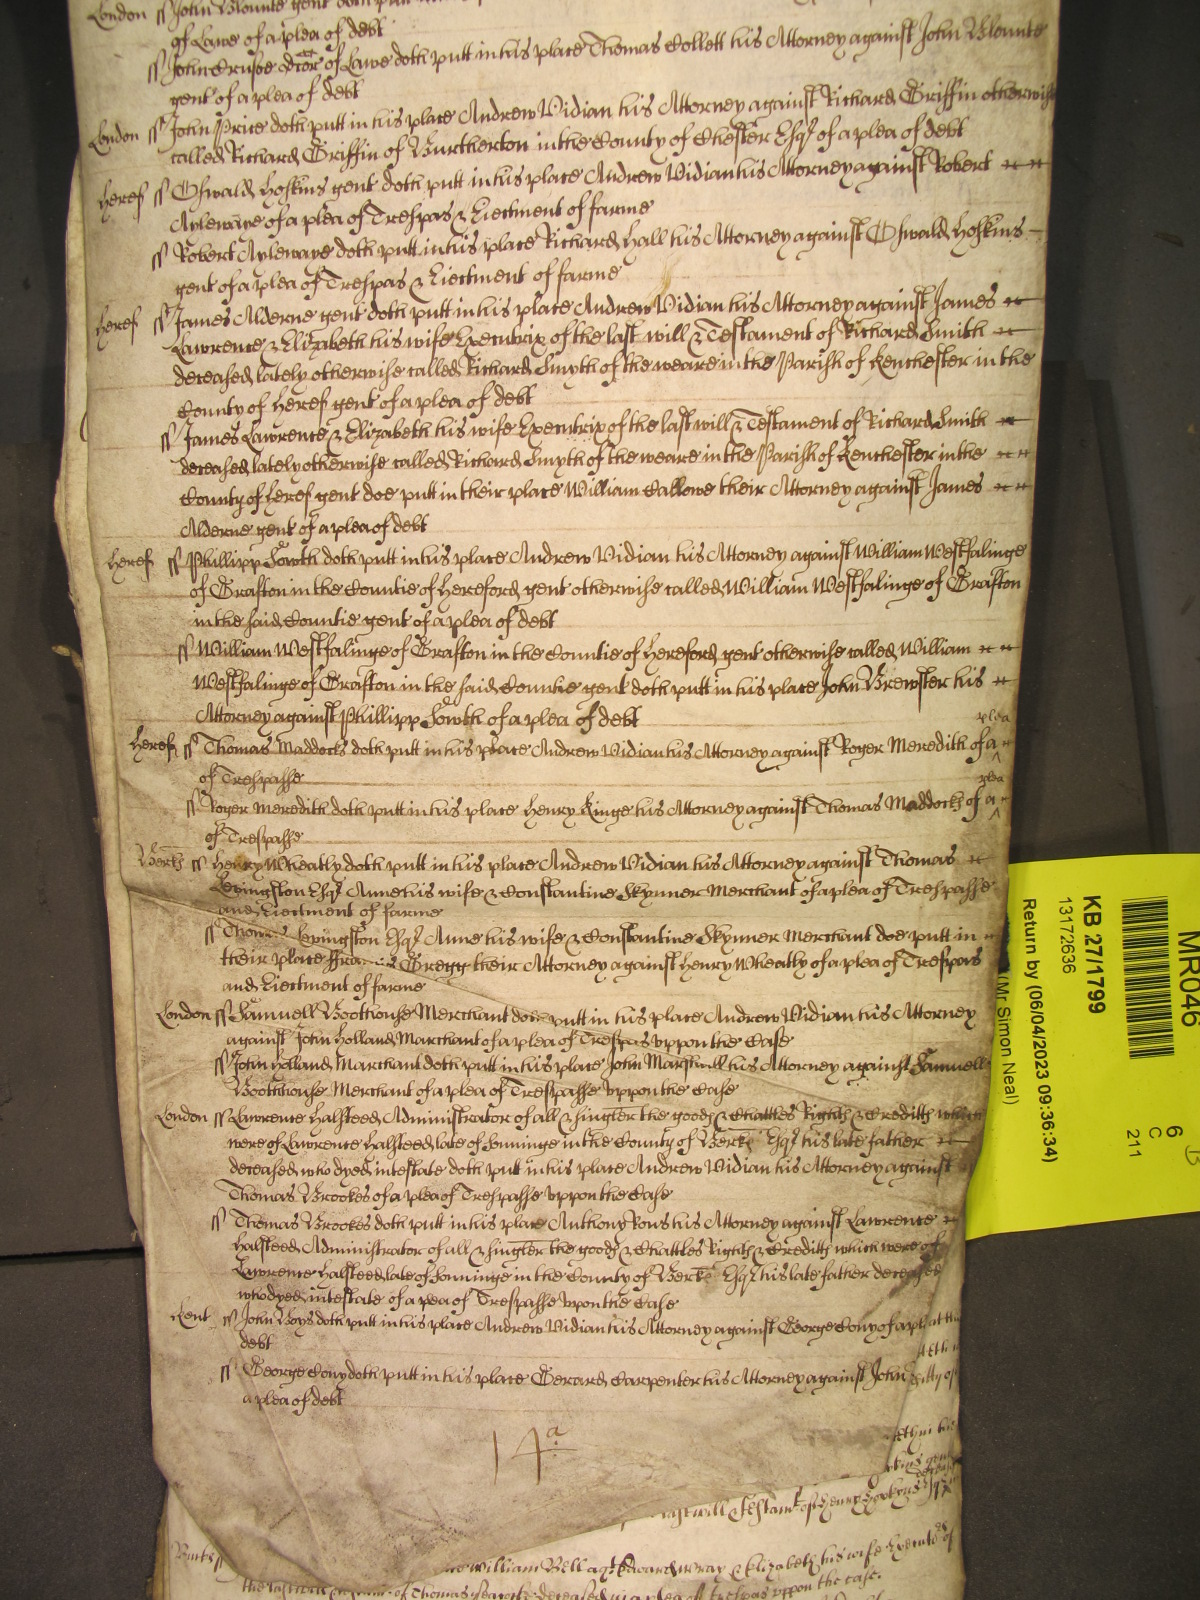 London ss John Blounte gent doth putt
of Lawe of a plea of debt
ss John Crusoe Doctor of Lawe doth putt in his place Thomas Collett his Attorney against John Blounte
gent of a plea of debt
London ss John Price doth putt in his place Andrew Vidian his Attorney against Richard Griffin otherwise
called Richard Griffin of Burtherton in the County of Chester Esqr of a plea of debt
Heref ss Oswald Hoskins gent doth putt in his place Andrew Vidian his Attorney against Robert
Aylewaye of a plea of Trespas & Eiectment of farme
ss Robert Aylewaye doth putt in his place Richard Hall his Attorney against Oswald Hoskins
gent of a plea of Trespas & Eiectment of farme
Heref ss James Alderne gent doth putt in his place Andrew Vidian his Attorney against James
Lawrence & Elizabeth his wife Executrix of the last will & Testament of Richard Smith
deceased lately otherwise called Richard Smyth of the weare in the Parish of Kenchester in the
County of Heref gent of a plea of debt
ss James Lawrence & Elizabeth his wife Executrix of the last will & Testament of Richard Smith
deceased lately otherwise called Richard Smyth of the weare in the Parish of Kenchester in the
County of Heref gent doe putt in their place William Callowe their Attorney against James
Alderne gent of a plea of debt
Heref ss Phillipp Sowth doth putt in his place Andrew Vidian his Attorney against William Westfalinge
of Grafton in the Countie of Hereford gent otherwise called William Westfalinge of Grafton
in the said Countie gent of a plea of debt
ss William Westfalinge of Grafton in the Countie of Hereford gent otherwise called William
Westfalinge of Grafton in the said Countie gent doth putt in his place John Brewster his
Attorney against Phillipp Sowth of a plea of debt
Heref ss Thomas Maddocks doth putt in his place Andrew Vidian his Attorney against Roger Meredith of a plea
of Trespasse
ss Roger Meredith doth putt in his place Henry Kinge his Attorney against Thomas Maddocks of a plea
of Trespasse
Berks ss Henry Wheatly doth putt in his place Andrew Vidian his Attorney against Thomas
Levingston Esqr Anne his wife & Constantine Skynner Merchant of a plea of Trespasse
and Eiectment of farme
ss Thomas Levingston Esqr Anne his wife & Constantine Skynner Merchant doe putt in
their place Gregg their Attorney against Henry Wheatly of a plea of Trespas
and Eiectment of farme
London ss Samuell Boothouse Merchant doth putt in his place Andrew Vidian his Attorney
against John Holland Marchant of a plea of Trespas uppon the Case
ss John Holland Marchant doth putt in his place John Marshall his Attorney against Samuell
Boothouse Merchant of a plea of Trespasse uppon the Case
London ss Lawrence Halsteed Administrator of all & singler the goods & Chattles Rights & Creditts which
were of Lawrence Halsteed late of Sonninge in the County of Berks Esqr his late father
deceased who dyed intestate doth putt in his place Andrew Vidian his Attorney against
Thomas Brookes of a plea of Trespasse uppon the Case
ss Thomas Brookes doth putt in his place Anthony Rous his Attorney against Lawrence
Halsteed Administrator of all & singler the goods & Chattles Rights & Creditts which were of
Lawrence Halsteed late of Sonninge in the County of Berks Esqr his late father deceased
who dyed intestate of a plea of Trespasse upon the Case
Kent ss John Boys doth putt in his place Andrew Vidian his Attorney against George Cony of a
debt
ss George Cony doth putt in his place Gerard Carpenter his Attorney against John
a plea of debt
14a
last will & Testamt of Henry
William Bell agt Edward wray & Elizabeth his wife Executors of
the last will of Thomas deceased in a plea of trespas uppon the case.
MR046
6
C
211
KB 27/1799
13172636
Return by (06/04/2023 09:36:34)
(Mr Simon Neal)